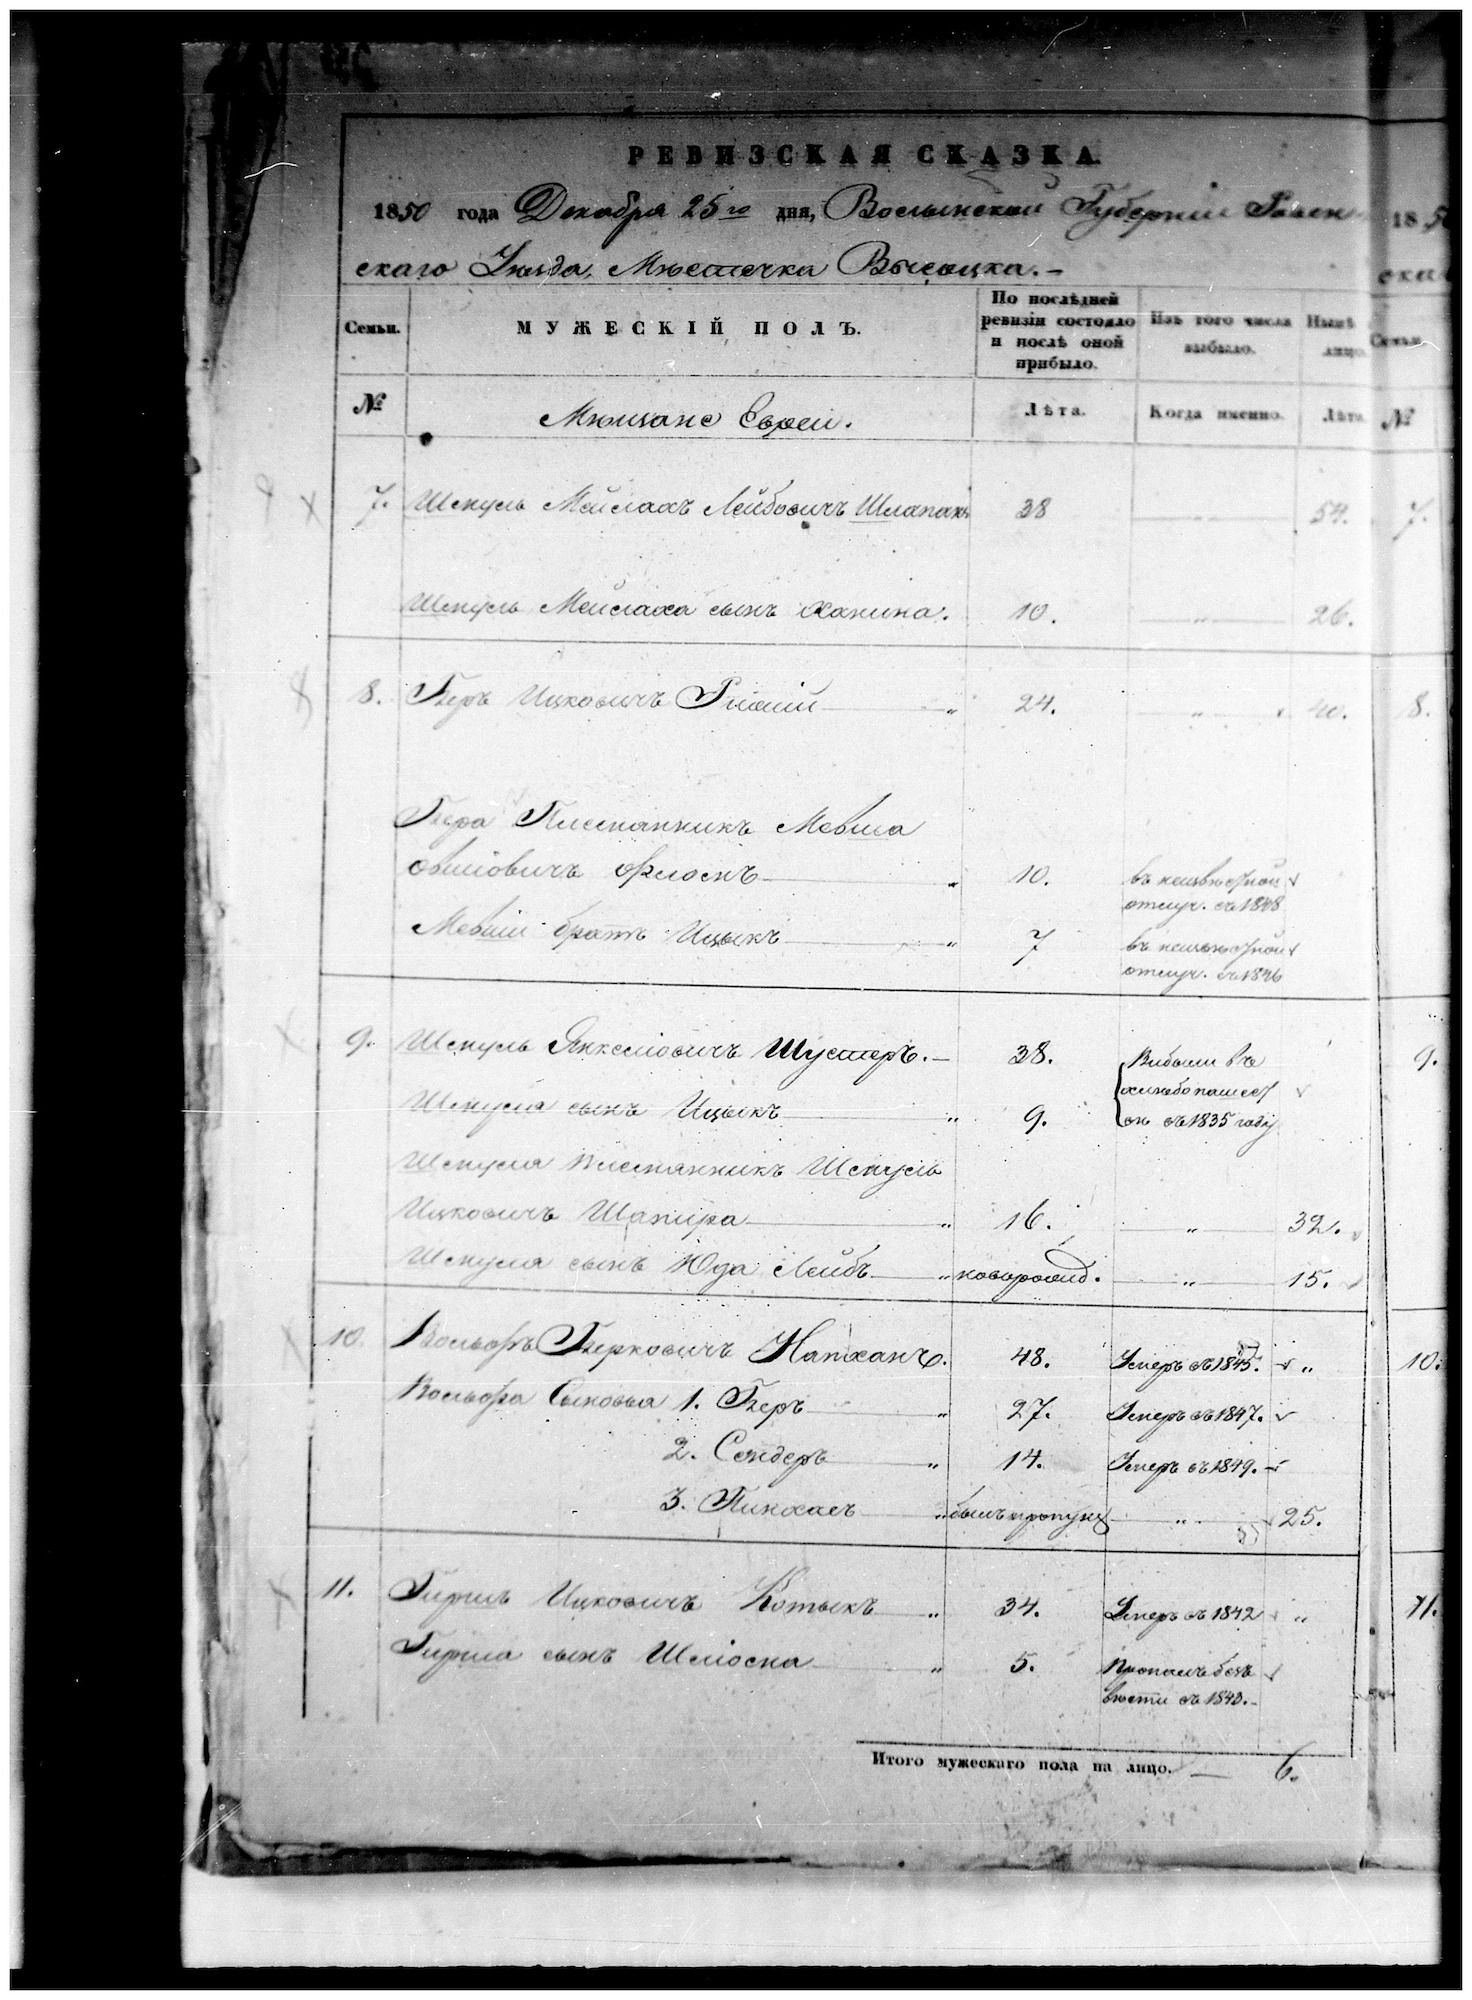 РЕВИЗСКАЯ СКАЗКА.
1850 года Декабря 25го дня, Волынской Губерніи Ровен-
скаго Уѣзда, Мѣстечка Высоцка. -
Семьи.
МУЖЕСКІЙ ПОЛЪ.
По послѣдней ревизіи состояло и послѣ оной прибыло.
Изъ того числа выбыло.
Нынѣ на лицо.
№
Мѣщане Евреи.
Лѣта.
Когда именно.
Лѣта.
7. Шмуль Мейлахъ Лейбовичъ Шлапакъ 38 54.
Шмуль Мейлаха сынъ Ханина. 10. " 26.
8. Беръ Ицковичъ " 24. " 40.
Бера Племянникъ Мевша
10. въ неизвѣстной
отлуч. съ 1848
Мевши братъ Ицыкъ " 7 въ неизвѣстной
отлуч. съ 1846
9. Шмуль Янкеліовичъ Шустеръ. - 38. Выбыли въ
Шмуля сынъ Ицыкъ " 9. хлѣбопашест
съ 1835 году
Шмуля племянникъ Шмуль
Ицковичъ Шапира " 16. " 32.
Шмуля сынъ Юда Лейбъ " новорожд. " 15.
10. Вольфъ Берковичъ Натханъ. 48. Умеръ съ 1845. "
Вольфа Сыновья 1. Беръ " 27. Умеръ съ 1847.
2. Сендеръ " 14. Умеръ съ 1849.
3. Пинхасъ " былъ пропущ " 25.
11. Гиршъ Ицковичъ Котыкъ " 34. Умеръ съ 1842 "
Гирша сынъ Шліома " 5. Пропалъ безъ
вѣсти съ 1843. -
Итого мужескаго пола на лицо. 6.